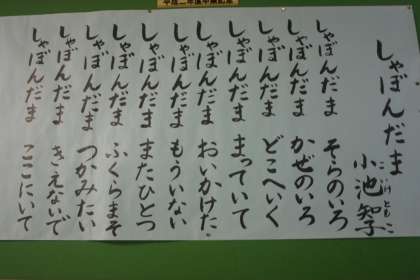 しゃぼんだま
小池智子
しゃぼんだま そらのいろ
しゃぼんだま かぜのいろ
しゃぼんだま どこへいく
しゃぼんだま まっていて
しゃぼんだま おいかけた
しゃぼんだま もういない
しゃぼんだま またひとつ
しゃぼんだま ふくらまそ
しゃぼんだま つかみたい
しゃぼんだま きえないで
しゃぼんだま ここにいて